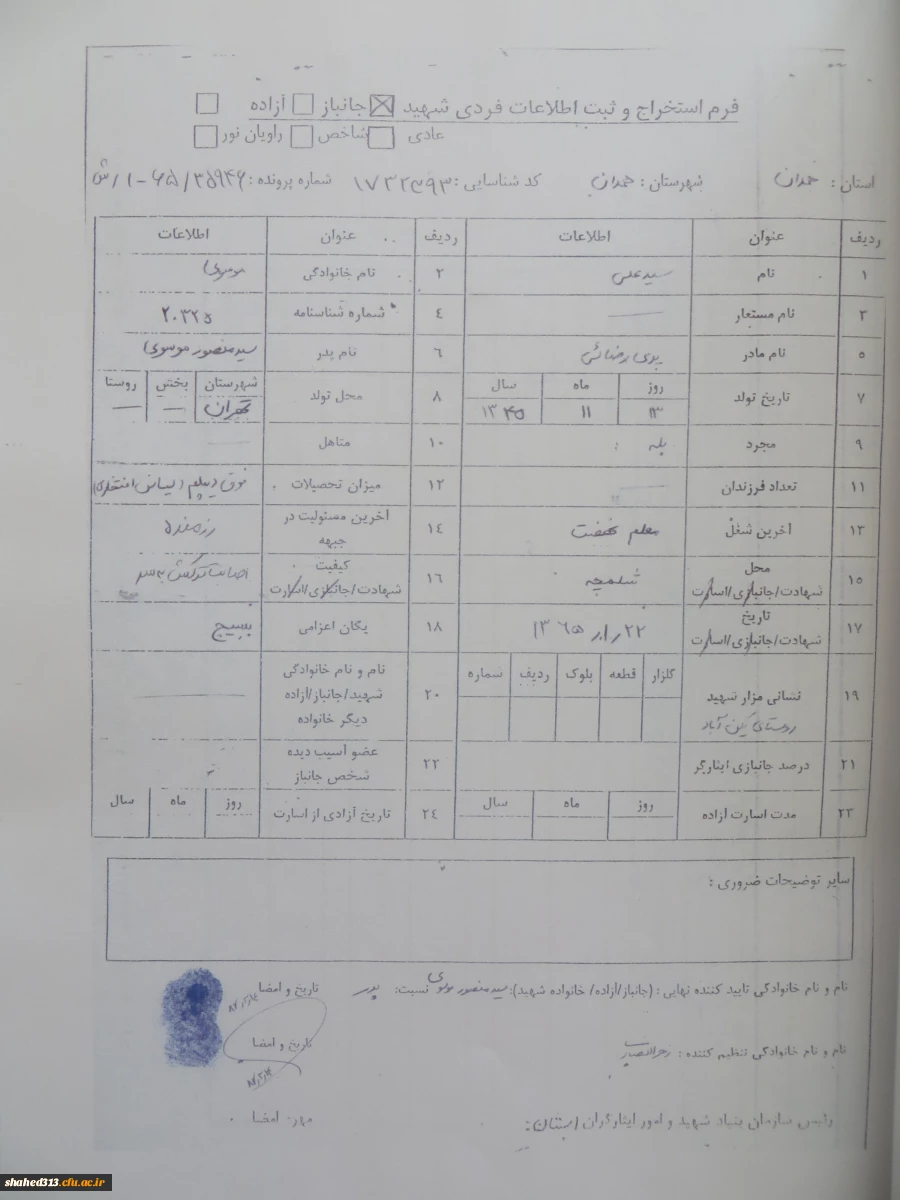 فرم استخراج و ثبت اطلاعات فردی شهید جانباز آزاده
عادی شاخص راویان نور
استان : همدان شهرستان : همدان کد شناسایی : ۱۷۳۲۴۹۳ شماره پرونده :
ردیف عنوان اطلاعات ردیف عنوان اطلاعات
۱ نام سیدعلی ۲ نام خانوادگی موسوی
۳ نام مستعار — ٤ شماره شناسنامه ۲۰۳۲۵
۵ نام مادر ۶ نام پدر سید منصور موسوی
۷ تاریخ تولد روز ماه سال ۸ محل تولد شهرستان بخش روستا
۱۳ ۱۱ ۱۳۴۵ تهران — —
۹ مجرد بله : ۱۰ متاهل
۱۱ تعداد فرزندان — ۱۲ میزان تحصیلات فوق دیپلم (لیسانس افتخاری)
۱۳ آخرین شغل معلم نهضت ۱٤ آخرین مسئولیت در جبهه رزمنده
۱۵ محل شهادت/جانبازی/اسارت شلمچه ۱۶ کیفیت شهادت/جانبازی/اسارت اصابت ترکش به سر
۱۷ تاریخ شهادت/جانبازی/اسارت ۱۸ یگان اعزامی بسیج
۱۹ نشانی مزار شهید گلزار قطعه بلوک ردیف شماره ۲۰ نام و نام خانوادگی شهید/جانباز/آزاده دیگر خانواده —
روستای
۲۱ درصد جانبازی ایثارگر ۲۲ عضو آسیب دیده شخص جانباز
۲۳ مدت اسارت آزاده روز ماه سال ۲٤ تاریخ آزادی از اسارت روز ماه سال
سایر توضیحات ضروری :
نام و نام خانوادگی تایید کننده نهایی : (جانباز/آزاده/ خانواده شهید): سید منصور موسوی نسبت: پدر تاریخ و امضا
نام و نام خانوادگی تنظیم کننده : تاریخ و امضا
رئیس سازمان بنیاد شهید و امور ایثارگران استان: مهر- امضا
shahed313.cfu.ac.ir